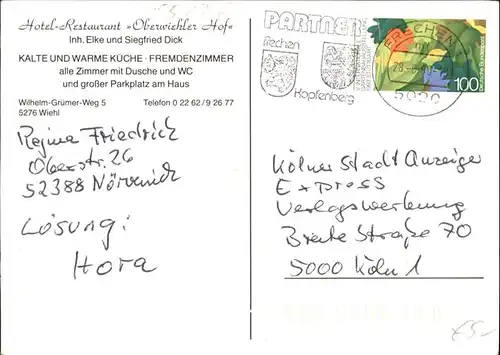 Hotel-Restaurant »Oberwiehler Hof«
Inh. Elke und Siegfried Dick
KALTE UND WARME KÜCHE · FREMDENZIMMER
alle Zimmer mit Dusche und WC
und großer Parkplatz am Haus
Wilhelm-Grümer-Weg 5 Telefon 0 22 62/9 26 77
5276 Wiehl
Regina Friedrich
Oberstr. 26
52388 Nörvenich
Lösung:
Hora
PARTNER
frechen
Kapfenberg
FRECHEN
5020
100
Deutsche Bundespost
Kölner Stadt Anzeiger
Express
Verlagswerbung
Breite Straße 70
5000 Köln 1